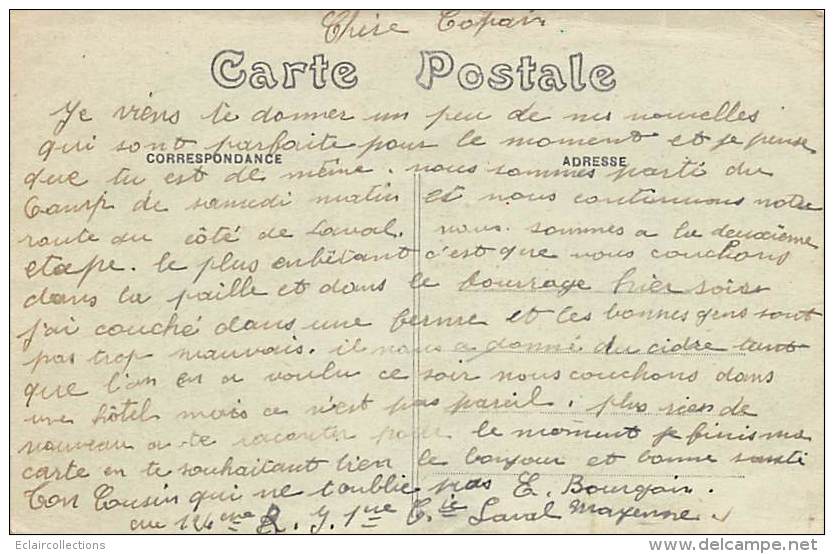 Chère Copain
Carte Postale
Je viens te donner un peu de nes nouvelles
qui sont parfaite pour le moment et je pense
CORRESPONDANCE ADRESSE
que tu est de même. nous sommes parti du
Camp de samedi matin et nous continuons notre
route du côté de Laval. nous sommes a la deuxième
etape. le plus enbêtant c'est que nous couchons
dans la paille et dans le bourrage hier soir
j'ai couché dans une ferme et les bonnes gens sont
pas trop mauvais. il nous a donné du cidre tant
que l'on en a voulu ce soir nous couchons dans
une hôtel mais ce n'est pas pareil. plus rien de
nouveau a te raconter pour le moment je finis ma
carte en te souhaitant bien le bonjour et bonne santé
Ton Cousin qui ne t'oublie pas E. Bourgoin.
au 124eme R. I. 1ne Cie Laval Mayenne
Eclaircollections
delcampe.net